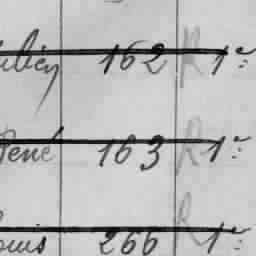 162 R 1e
René 163 R 1e
Louis 266 R 1e